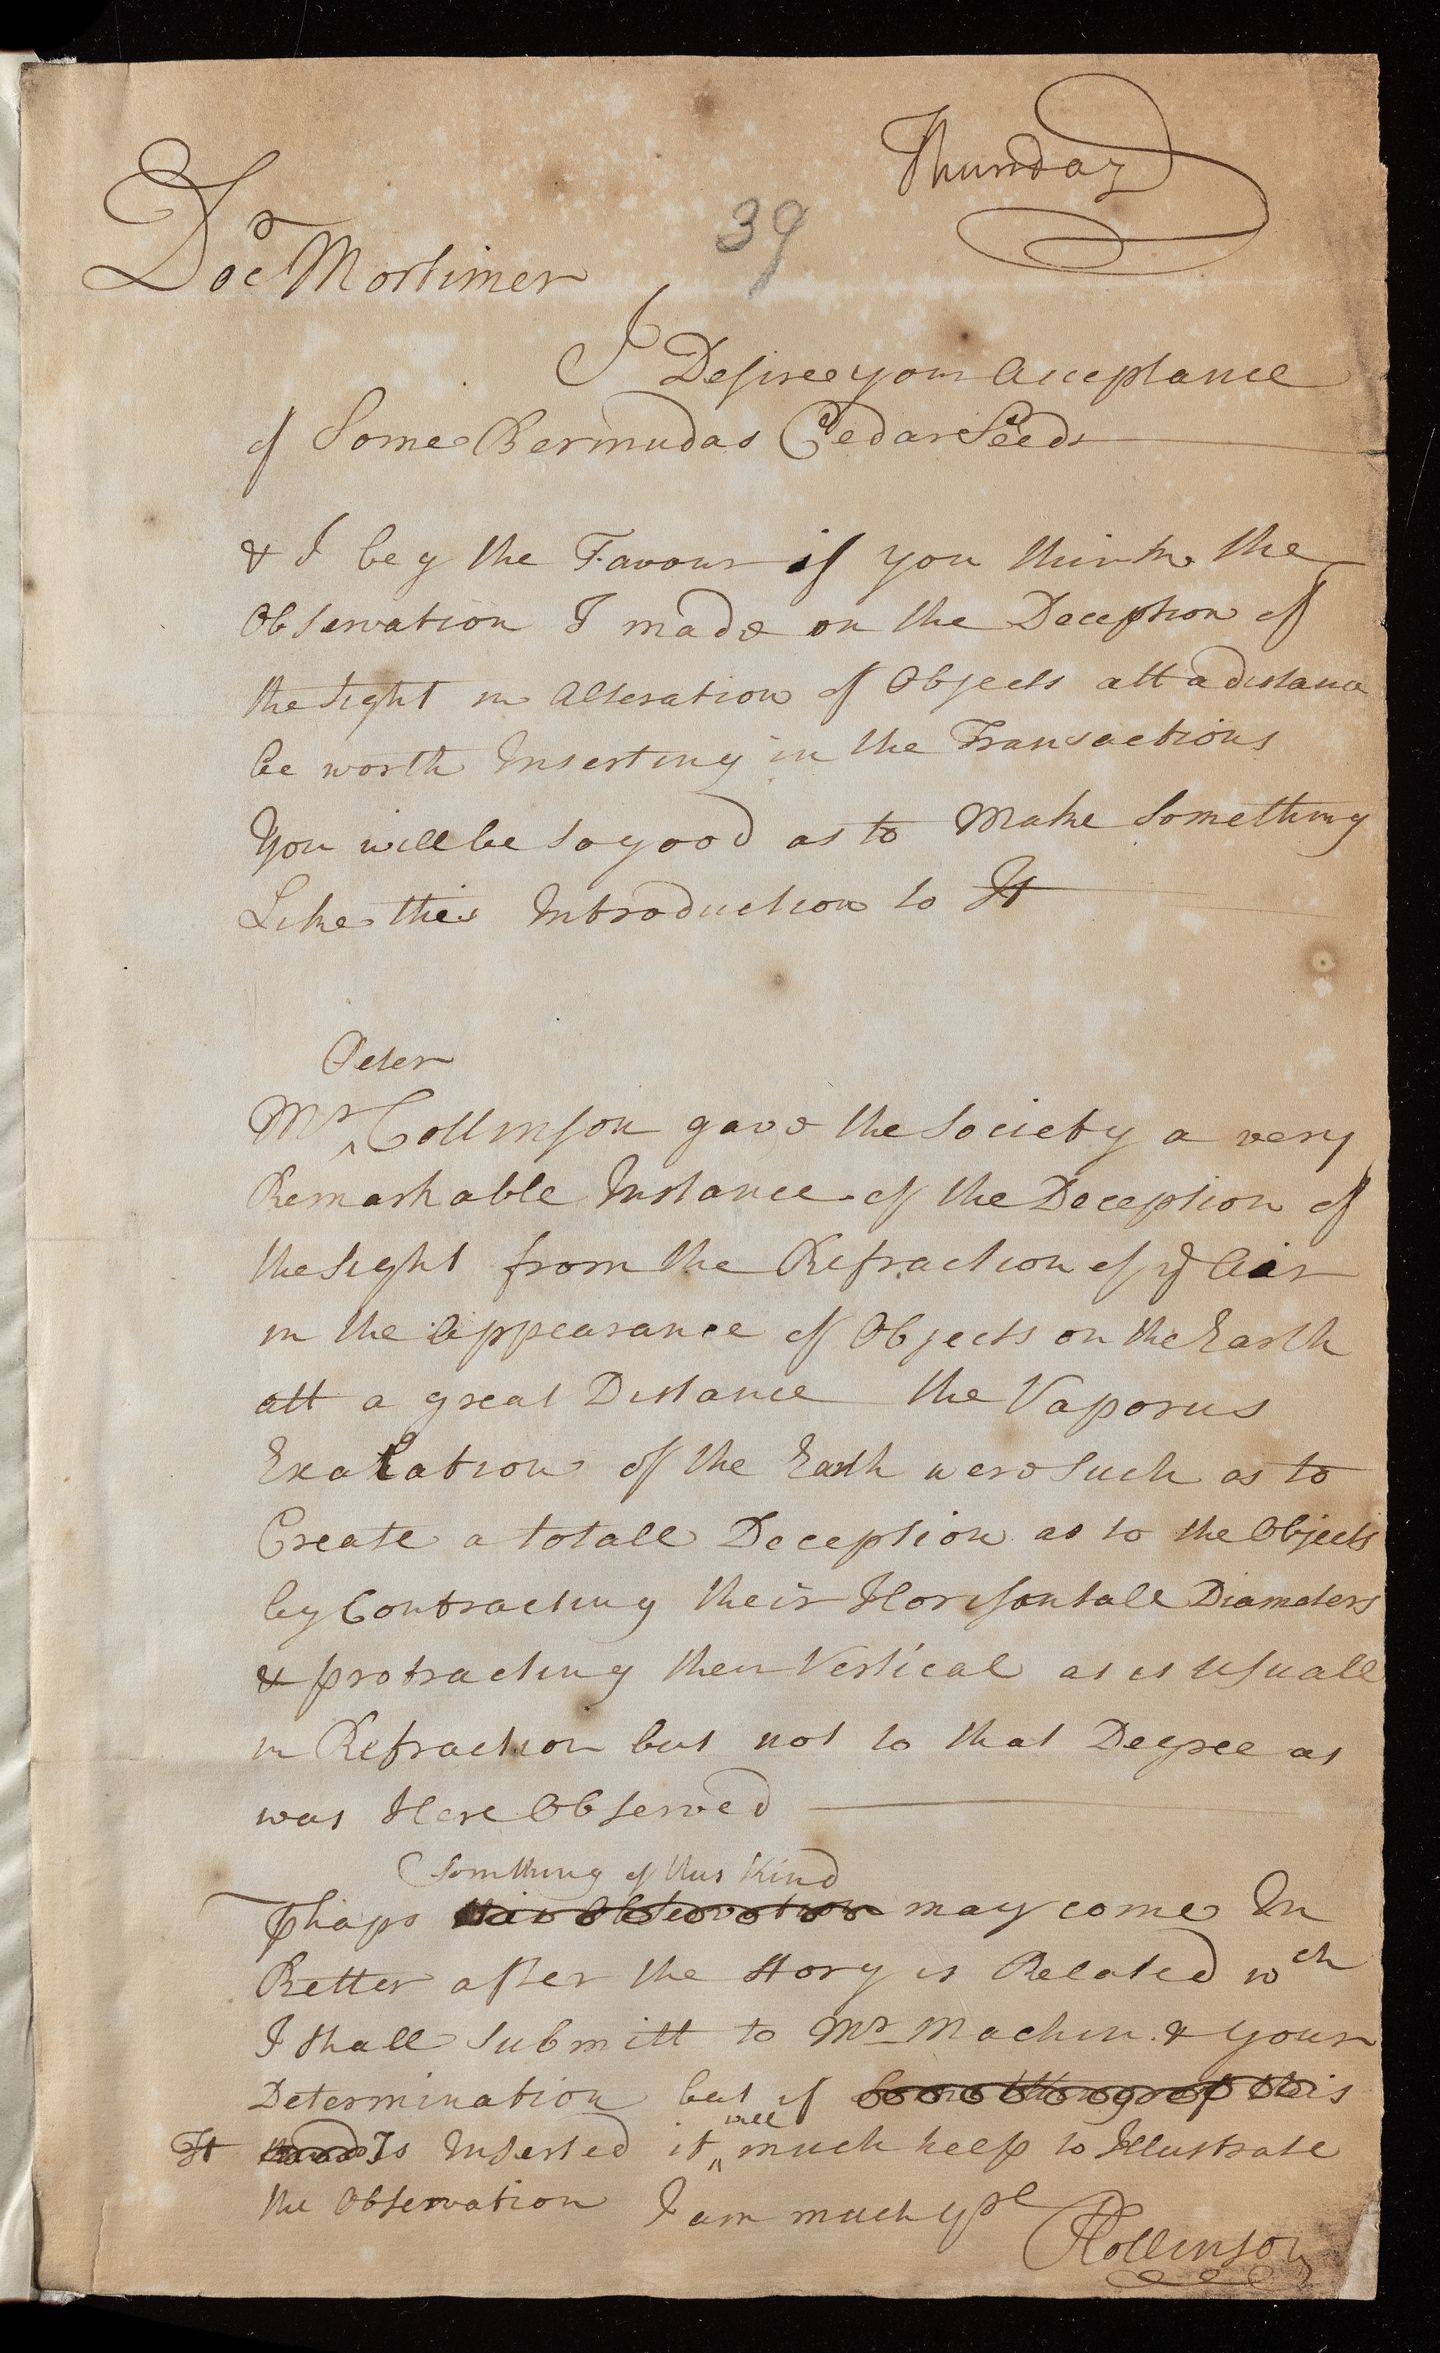 Thursday
39
Docr Mortimer
I Desire your Acceptance
of Some Bermudas Cedar Seeds
& I beg the Favour if you think the
Observation I made on the Deception of
the Sight in Alteration of Objects att a distance
be worth Inserting in the Transactions
You will be so good as to Make Something
Like this Introduction to It
Peter
Mr ^ Collinson gave the Society a very
Remarkable Instance of the Deception of
the Sight from the Refraction of ye Air
in the Appearance of Objects on the Earth
att a great Distance the Vaporus
Exalation of the Earth were such as to
Create a totall Deception as to the Objects
by Contracting their Horisontall Diameters
& protracting their Vertical as is usuall
in Refraction but not to that Degree as
was Here Observed
Somthing of this Kind
Phaps this Observation may come In
Better after the Story is Related wch
I shall submitt to Mr Machin & your
Determination but if Something of this
It kind Is Inserted it ^ will much help to Illustrate
the Observation I am much yrs
P Collinson